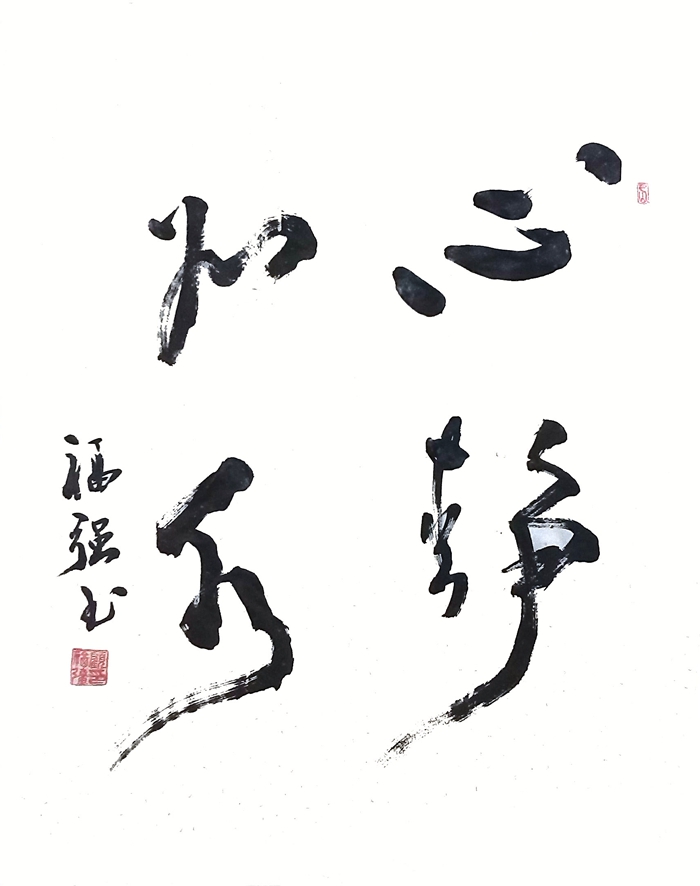 心静
如水
福强书